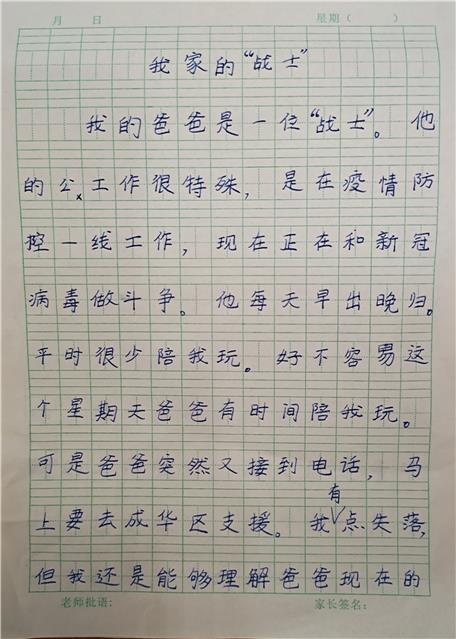 月 日 星期( )
我家的“战士”
我的爸爸是一位“战士”。他
的公工作很特殊，是在疫情防
控一线工作，现在正在和新冠
病毒做斗争。他每天早出晚归。
平时很少陪我玩。好不容易这
个星期天爸爸有时间陪我玩。
可是爸爸突然又接到电话，马
上要去成华区支援。我有点失落，
但我还是能够理解爸爸现在的
老师批语: 家长签名: